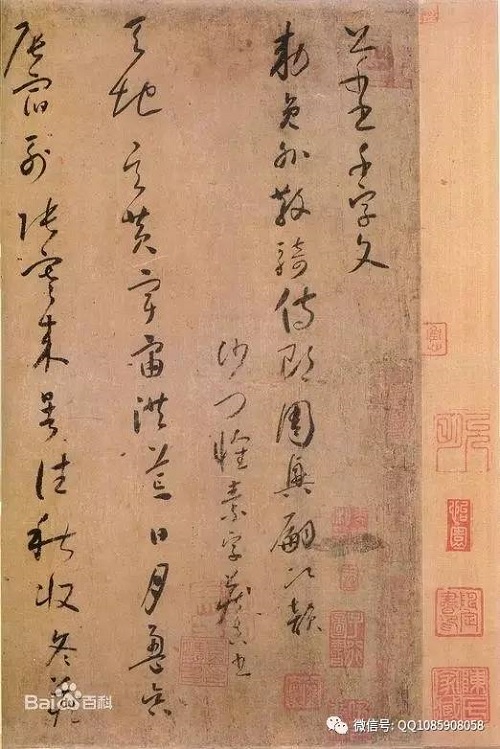 千字文
勅員外散騎侍郎周興嗣次韻
沙門懷素字藏真書
天地玄黃宇宙洪荒日月盈昃
辰宿列張寒來暑往秋收冬藏
Bai百科
微信号: QQ1085908058